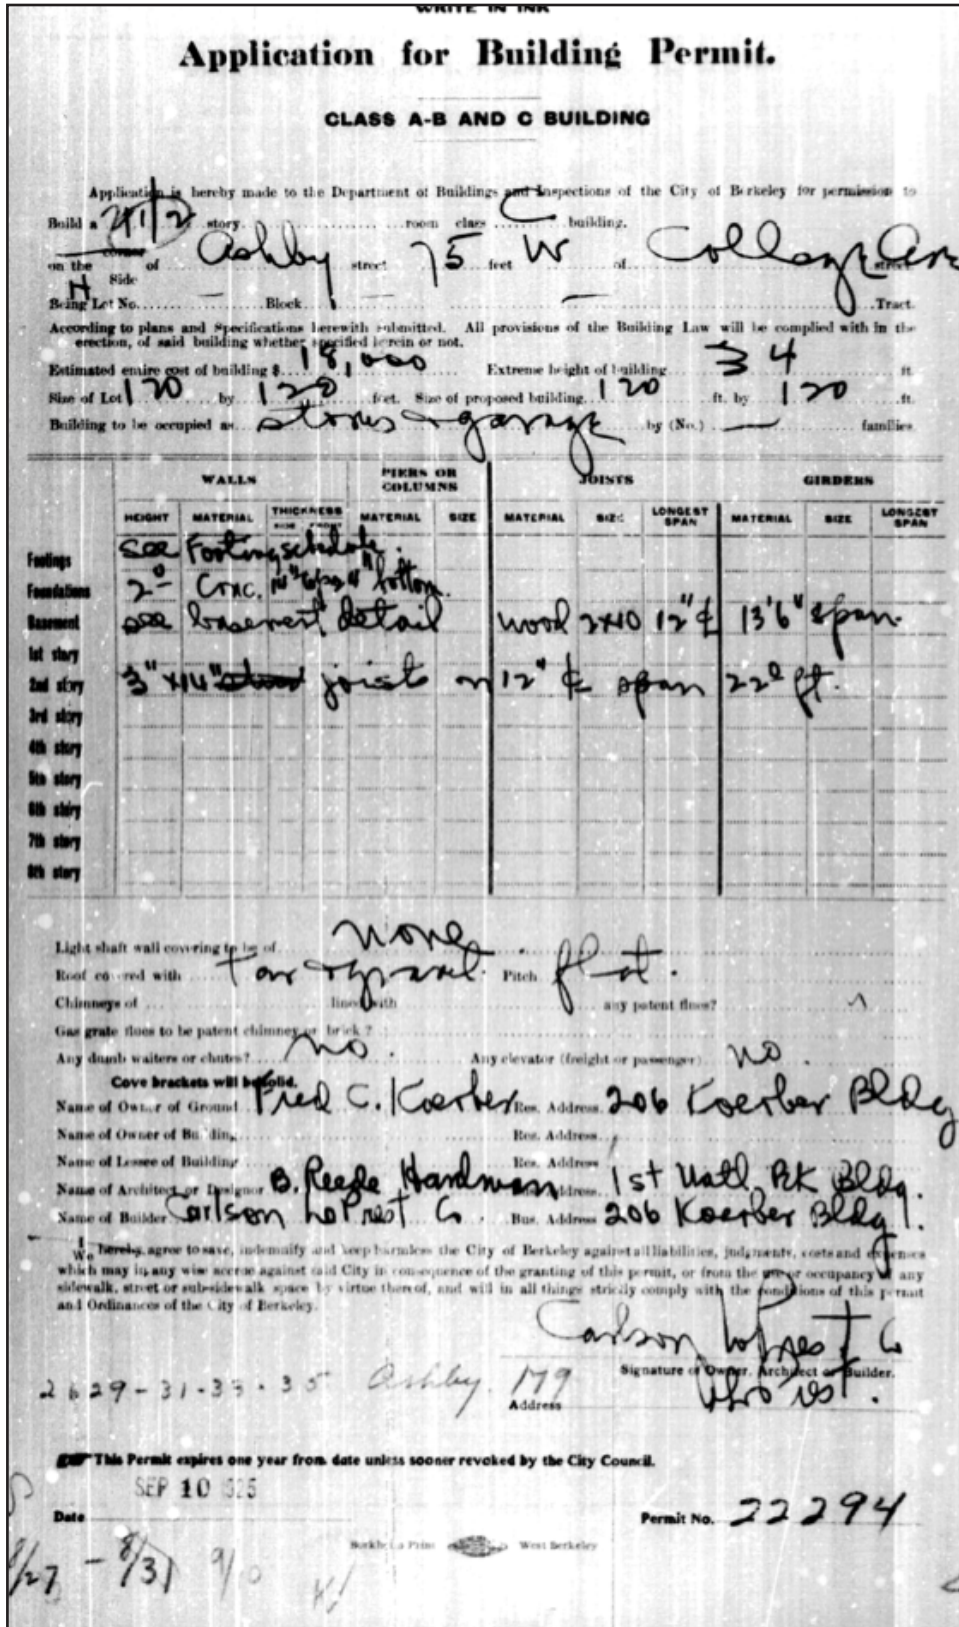 WRITE IN INK
Application for Building Permit.
CLASS A-B AND C BUILDING
Application is hereby made to the Department of Buildings and Inspections of the City of Berkeley for permission to
Build a 1 1/2 story room class C building.
on the N Side of Ashby street 75 feet W of College Ave street
Being Lot No. — Block — Tract.
According to plans and Specifications herewith submitted. All provisions of the Building Law will be complied with in the
erection, of said building whether specified herein or not.
Estimated entire cost of building $ 18,000 Extreme height of building 34 ft.
Size of Lot 120 by 120 feet. Size of proposed building 120 ft. by 120 ft.
Building to be occupied as stores & garage by (No.) — families
WALLS PIERS OR COLUMNS JOISTS GIRDERS
HEIGHT MATERIAL THICKNESS SIDE FRONT MATERIAL SIZE MATERIAL SIZE LONGEST SPAN MATERIAL SIZE LONGEST SPAN
Footings see Footing schedule.
Foundations 2° Conc. bottom.
Basement see basement detail wood 2x10 12" ¢ 13'6" span.
1st story
2nd story 3"x14" joists on 12" ¢ span 22° ft.
3rd story
4th story
5th story
6th story
7th story
8th story
Light shaft wall covering to be of none
Roof covered with tar & gravel. Pitch flat.
Chimneys of lined with any patent flues?
Gas grate flues to be patent chimney or brick?
Any dumb waiters or chutes? no. Any elevator (freight or passenger) no.
Cove brackets will be solid.
Name of Owner of Ground Fred C. Koerber Res. Address 206 Koerber Bldg
Name of Owner of Building Res. Address
Name of Lessee of Building Res. Address
Name of Architect or Designor B. Reede Hardman Address 1st Natl. Bk Bldg.
Name of Builder Carlson LoPrest Co. Bus. Address 206 Koerber Bldg.
I We hereby agree to save, indemnify and keep harmless the City of Berkeley against all liabilities, judgments, costs and expenses
which may in any wise accrue against said City in consequence of the granting of this permit, or from the use or occupancy of any
sidewalk, street or subsidewalk space by virtue thereof, and will in all things strictly comply with the conditions of this permit
and Ordinances of the City of Berkeley.
Carlson LoPrest Co
Signature of Owner, Architect or Builder.
2629-31-33-35 Ashby.
LoPrest.
Address
This Permit expires one year from date unless sooner revoked by the City Council.
SEP 10 1925
Date Permit No. 22294
West Berkeley
8/27 - 8/31 9/10